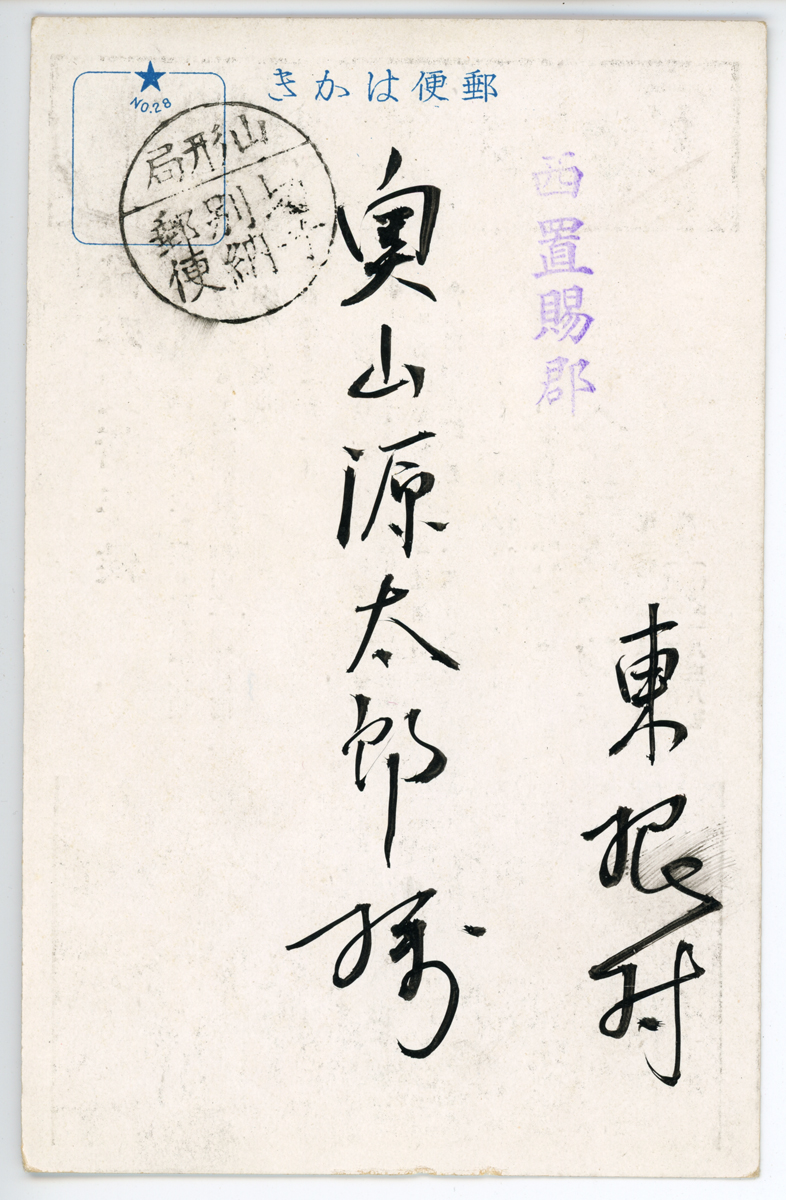 郵便はかき
★
NO.28
山形局
別納
郵便
西置賜郡
東根村
奥山源太郎様